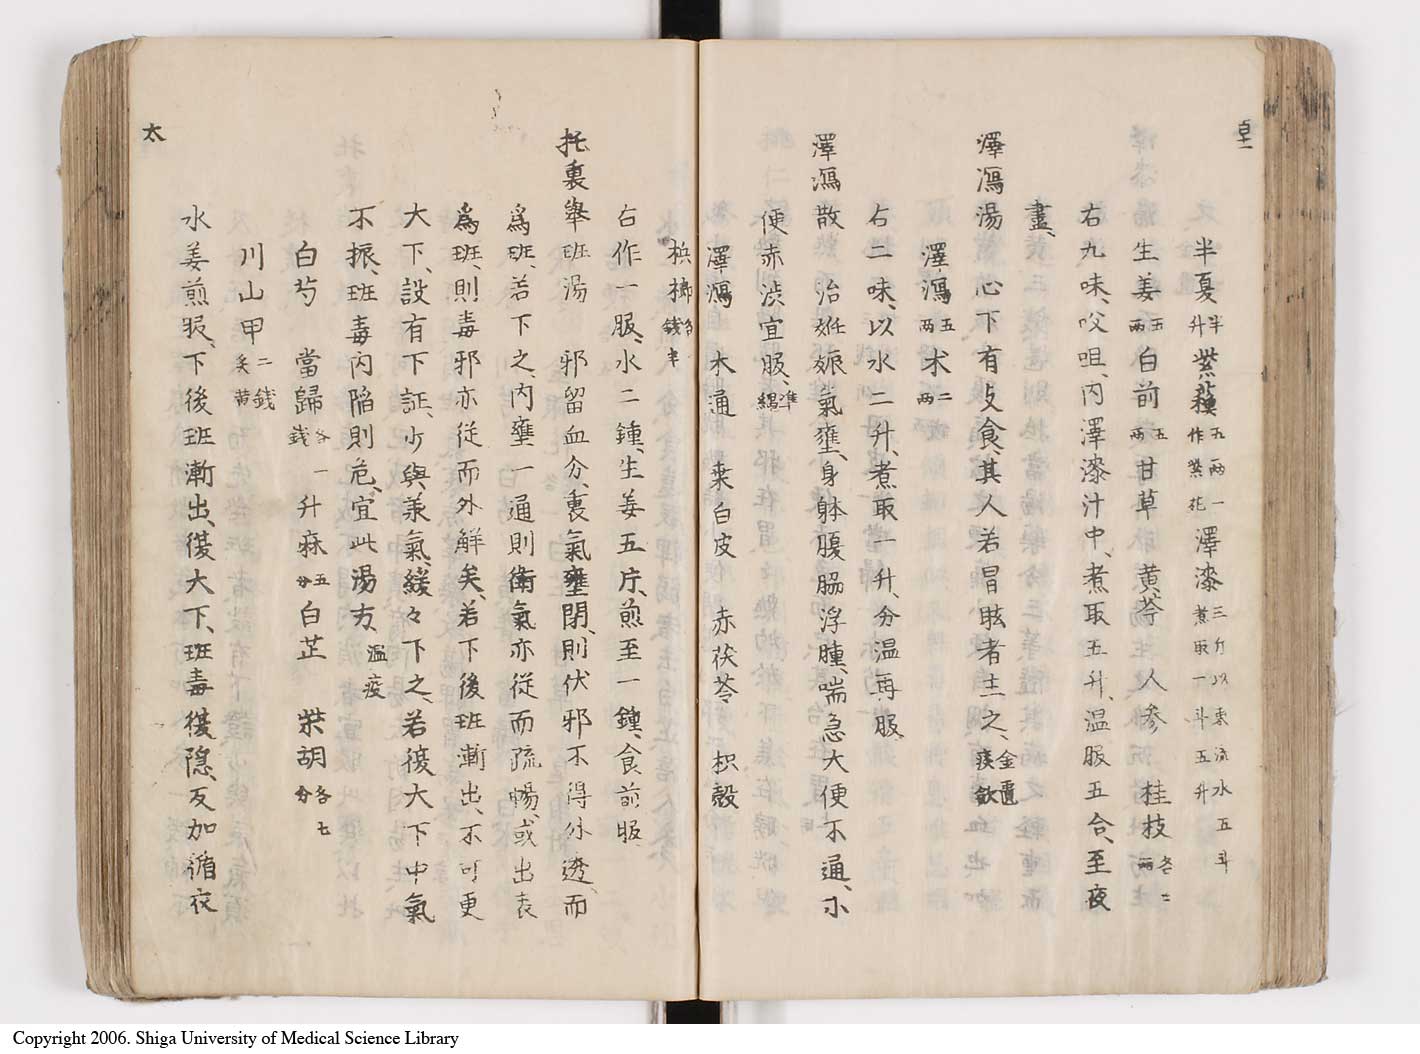 半夏半升 紫薓五兩一作紫苑 澤漆三斤以東流水五斗煮取一斗五升
生姜五兩 白前五兩 甘草 黄芩 人参 桂枝各二兩
右九味、㕮咀、内澤漆汁中、煮取五升、温服五合、至夜
盡、
澤瀉湯 心下有支食、其人若冒眩者主之、金匱痰飲
澤瀉五兩 朮二兩
右二味、以水二升、煮取一升、分温再服、
澤瀉散 治姙娠氣壅、身躰腹脇浮腫、喘急大便不通、小
便赤渋宜服、準繩
澤瀉 木通 桑白皮 赤茯苓 枳殻
梹榔各錢半
右作一服、水二鍾、生姜五片、煎至一鍾、食前服、
托裏举班湯 邪留血分、裏氣壅閉、則伏邪不得外透、而
爲班、若下之、内壅一通則衛氣亦従而疏暢、或出表
爲班、則毒邪亦従而外解矣、若下後班漸出、不可更
大下、設有下証、少與承氣、緩々下之、若復大下中氣
不振、班毒内陥則危、宜此湯方、温疫
白芍 當歸各一錢 升麻五分 白芷 柴胡各七分
川山甲二錢炙黄
水姜煎服、下後班漸出、復大下、班毒復隠、反加循衣
太